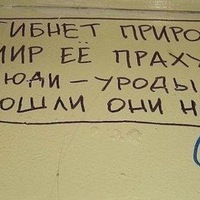 ГИБНЕТ ПРИРО
МИР ЕЁ ПРАХУ
ЮДИ – УРОДЫ
ОШЛИ ОНИ Н